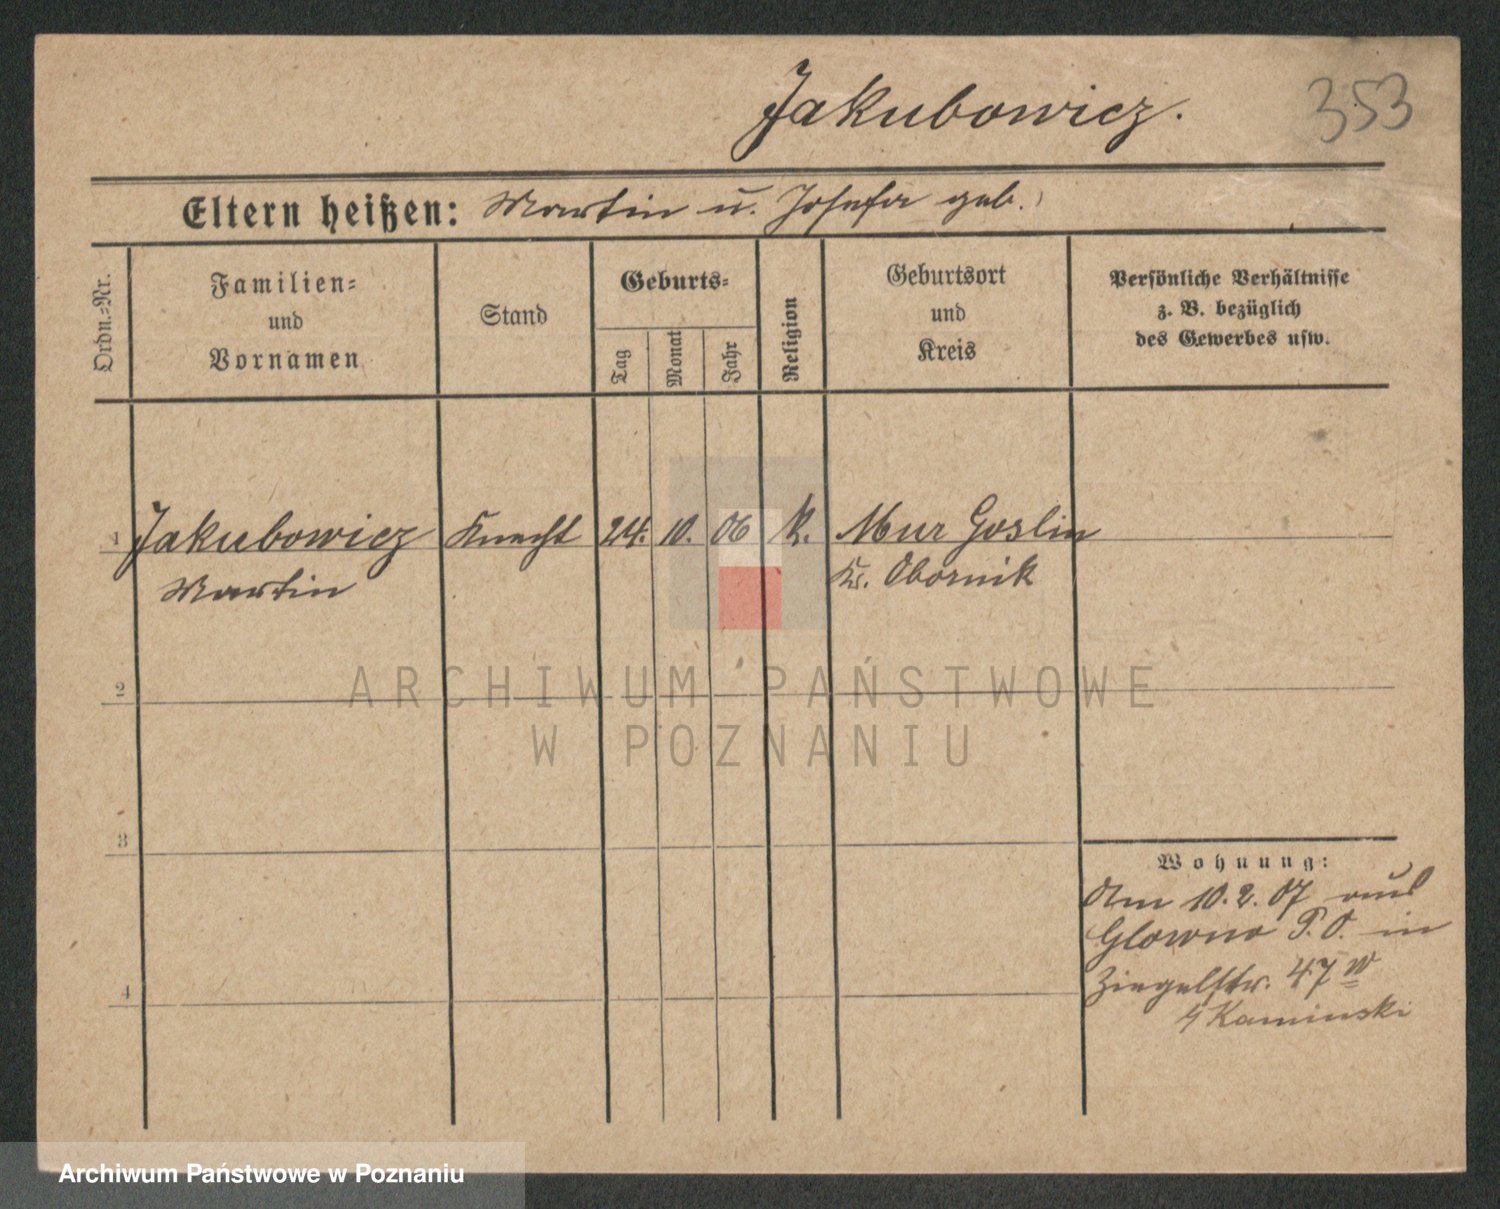 Jakubowicz.
353
Eltern heißen: Martin u. Josefa geb.
Ordn.-Nr.
Familien-
und
Vornamen
Stand
Geburts-
Tag
Monat
Jahr
Religion
Geburtsort
und
Kreis
Persönliche Verhältnisse
z. B. bezüglich
des Gewerbes usw.
1 Jakubowicz Knecht 24. 10. 06 k. Mur Goslin
Martin Kr. Obornik
2
ARCHIWUM PAŃSTWOWE
W POZNANIU
3
Wohnung:
Am 10.2.07 aus
Glowno P.O. in
4
Ziegelstr. 47
Kaminski
Archiwum Państwowe w Poznaniu